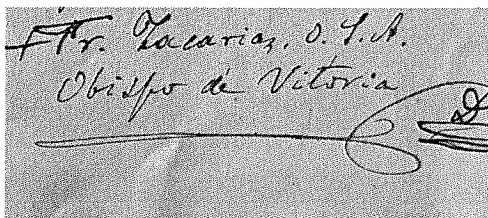 +Fr. Zacarias, O. S. A.
Obispo de Vitoria
D